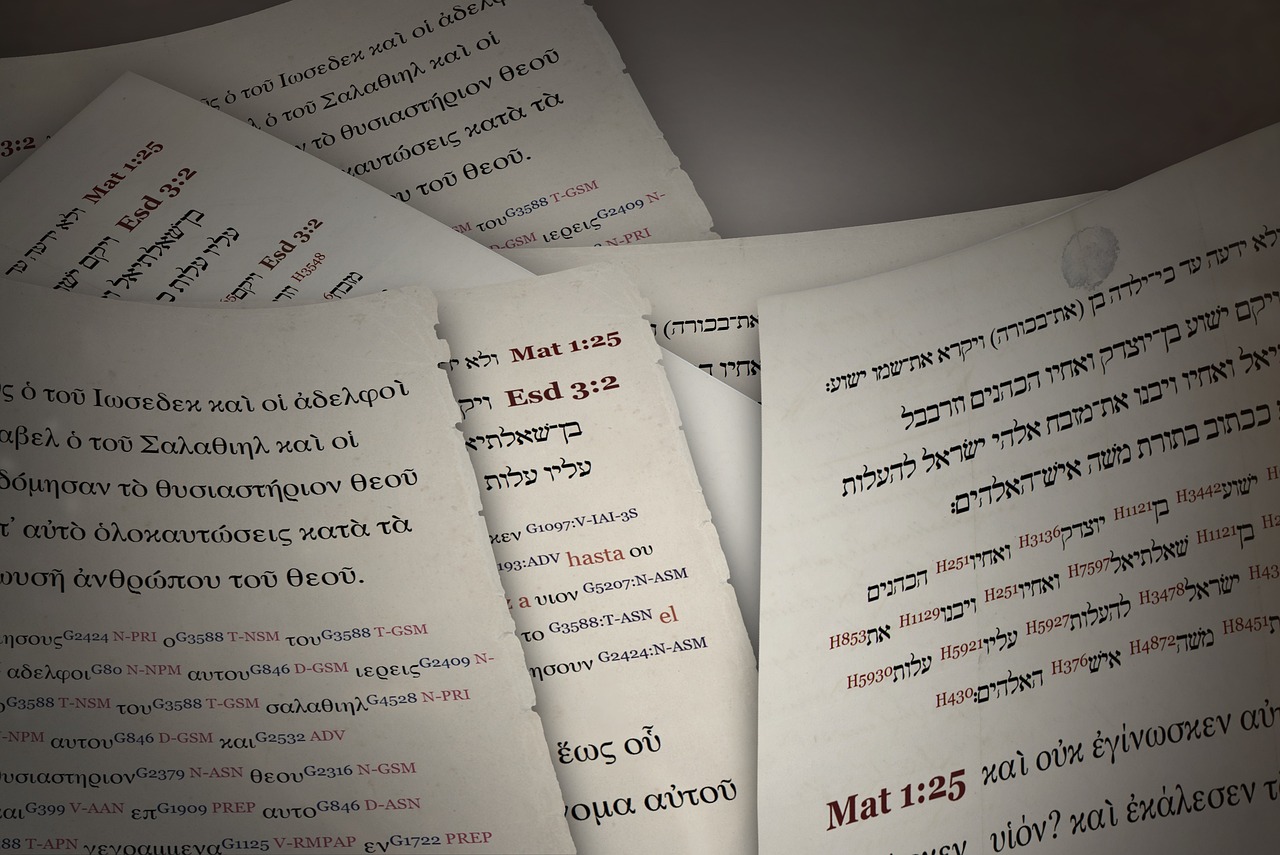 ὁ τοῦ Ιωσεδεκ καὶ οἱ
ὁ τοῦ Σαλαθιηλ καὶ οἱ
τὸ θυσιαστήριον θεοῦ
κατὰ τὰ
τοῦ θεοῦ.
του G3588 T-GSM
D-GSM ιερεις G2409 N-
N-PRI
3:2
Mat 1:25 ולא ידעה עד
Esd 3:2 ויקם
בן־שאלתיאל
עליו עלות
Esd 3:2
H3548
ὁ τοῦ Ιωσεδεκ καὶ οἱ ἀδελφοὶ
ὁ τοῦ Σαλαθιηλ καὶ οἱ
τὸ θυσιαστήριον θεοῦ
αὐτὸ ὁλοκαυτώσεις κατὰ τὰ
ἀνθρώπου τοῦ θεοῦ.
G2424 N-PRI ο G3588 T-NSM του G3588 T-GSM
αδελφοι G80 N-NPM αυτου G846 D-GSM ιερεις G2409 N-
G3588 T-NSM του G3588 T-GSM σαλαθιηλ G4528 N-PRI
N-NPM αυτου G846 D-GSM και G2532 ADV
G2379 N-ASN θεου G2316 N-GSM
G399 V-AAN επ G1909 PREP αυτο G846 D-ASN
T-APN γεγραμμενα G1125 V-RMPAP εν G1722 PREP
Mat 1:25 ולא
Esd 3:2
עליו עלות
G1097:V-IAI-3S
:ADV hasta ου
a υιον G5207:N-ASM
το G3588:T-ASN el
G2424:N-ASM
ἕως οὗ
αὐτοῦ
(את־בכורה)
ואחיו
ידעה עד כי־ילדה בן (את־בכורה) ויקרא את־שמו ישוע׃
ויקם ישוע בן־יוצדק ואחיו הכהנים וזרבבל
ואחיו ויבנו את־מזבח אלהי ישראל להעלות
ככתוב בתורת משה איש־האלהים׃
ישוע H3442 בן H1121 יוצדק H3136 ואחיו H251 הכהנים
בן H1121 שאלתיאל H7597 ואחיו H251 ויבנו H1129 את H853
ישראל H3478 להעלות H5927 עליו H5921 עלות H5930
H8451 משה H4872 איש H376 האלהים׃ H430
Mat 1:25 καὶ οὐκ ἐγίνωσκεν
υἱόν? καὶ ἐκάλεσεν